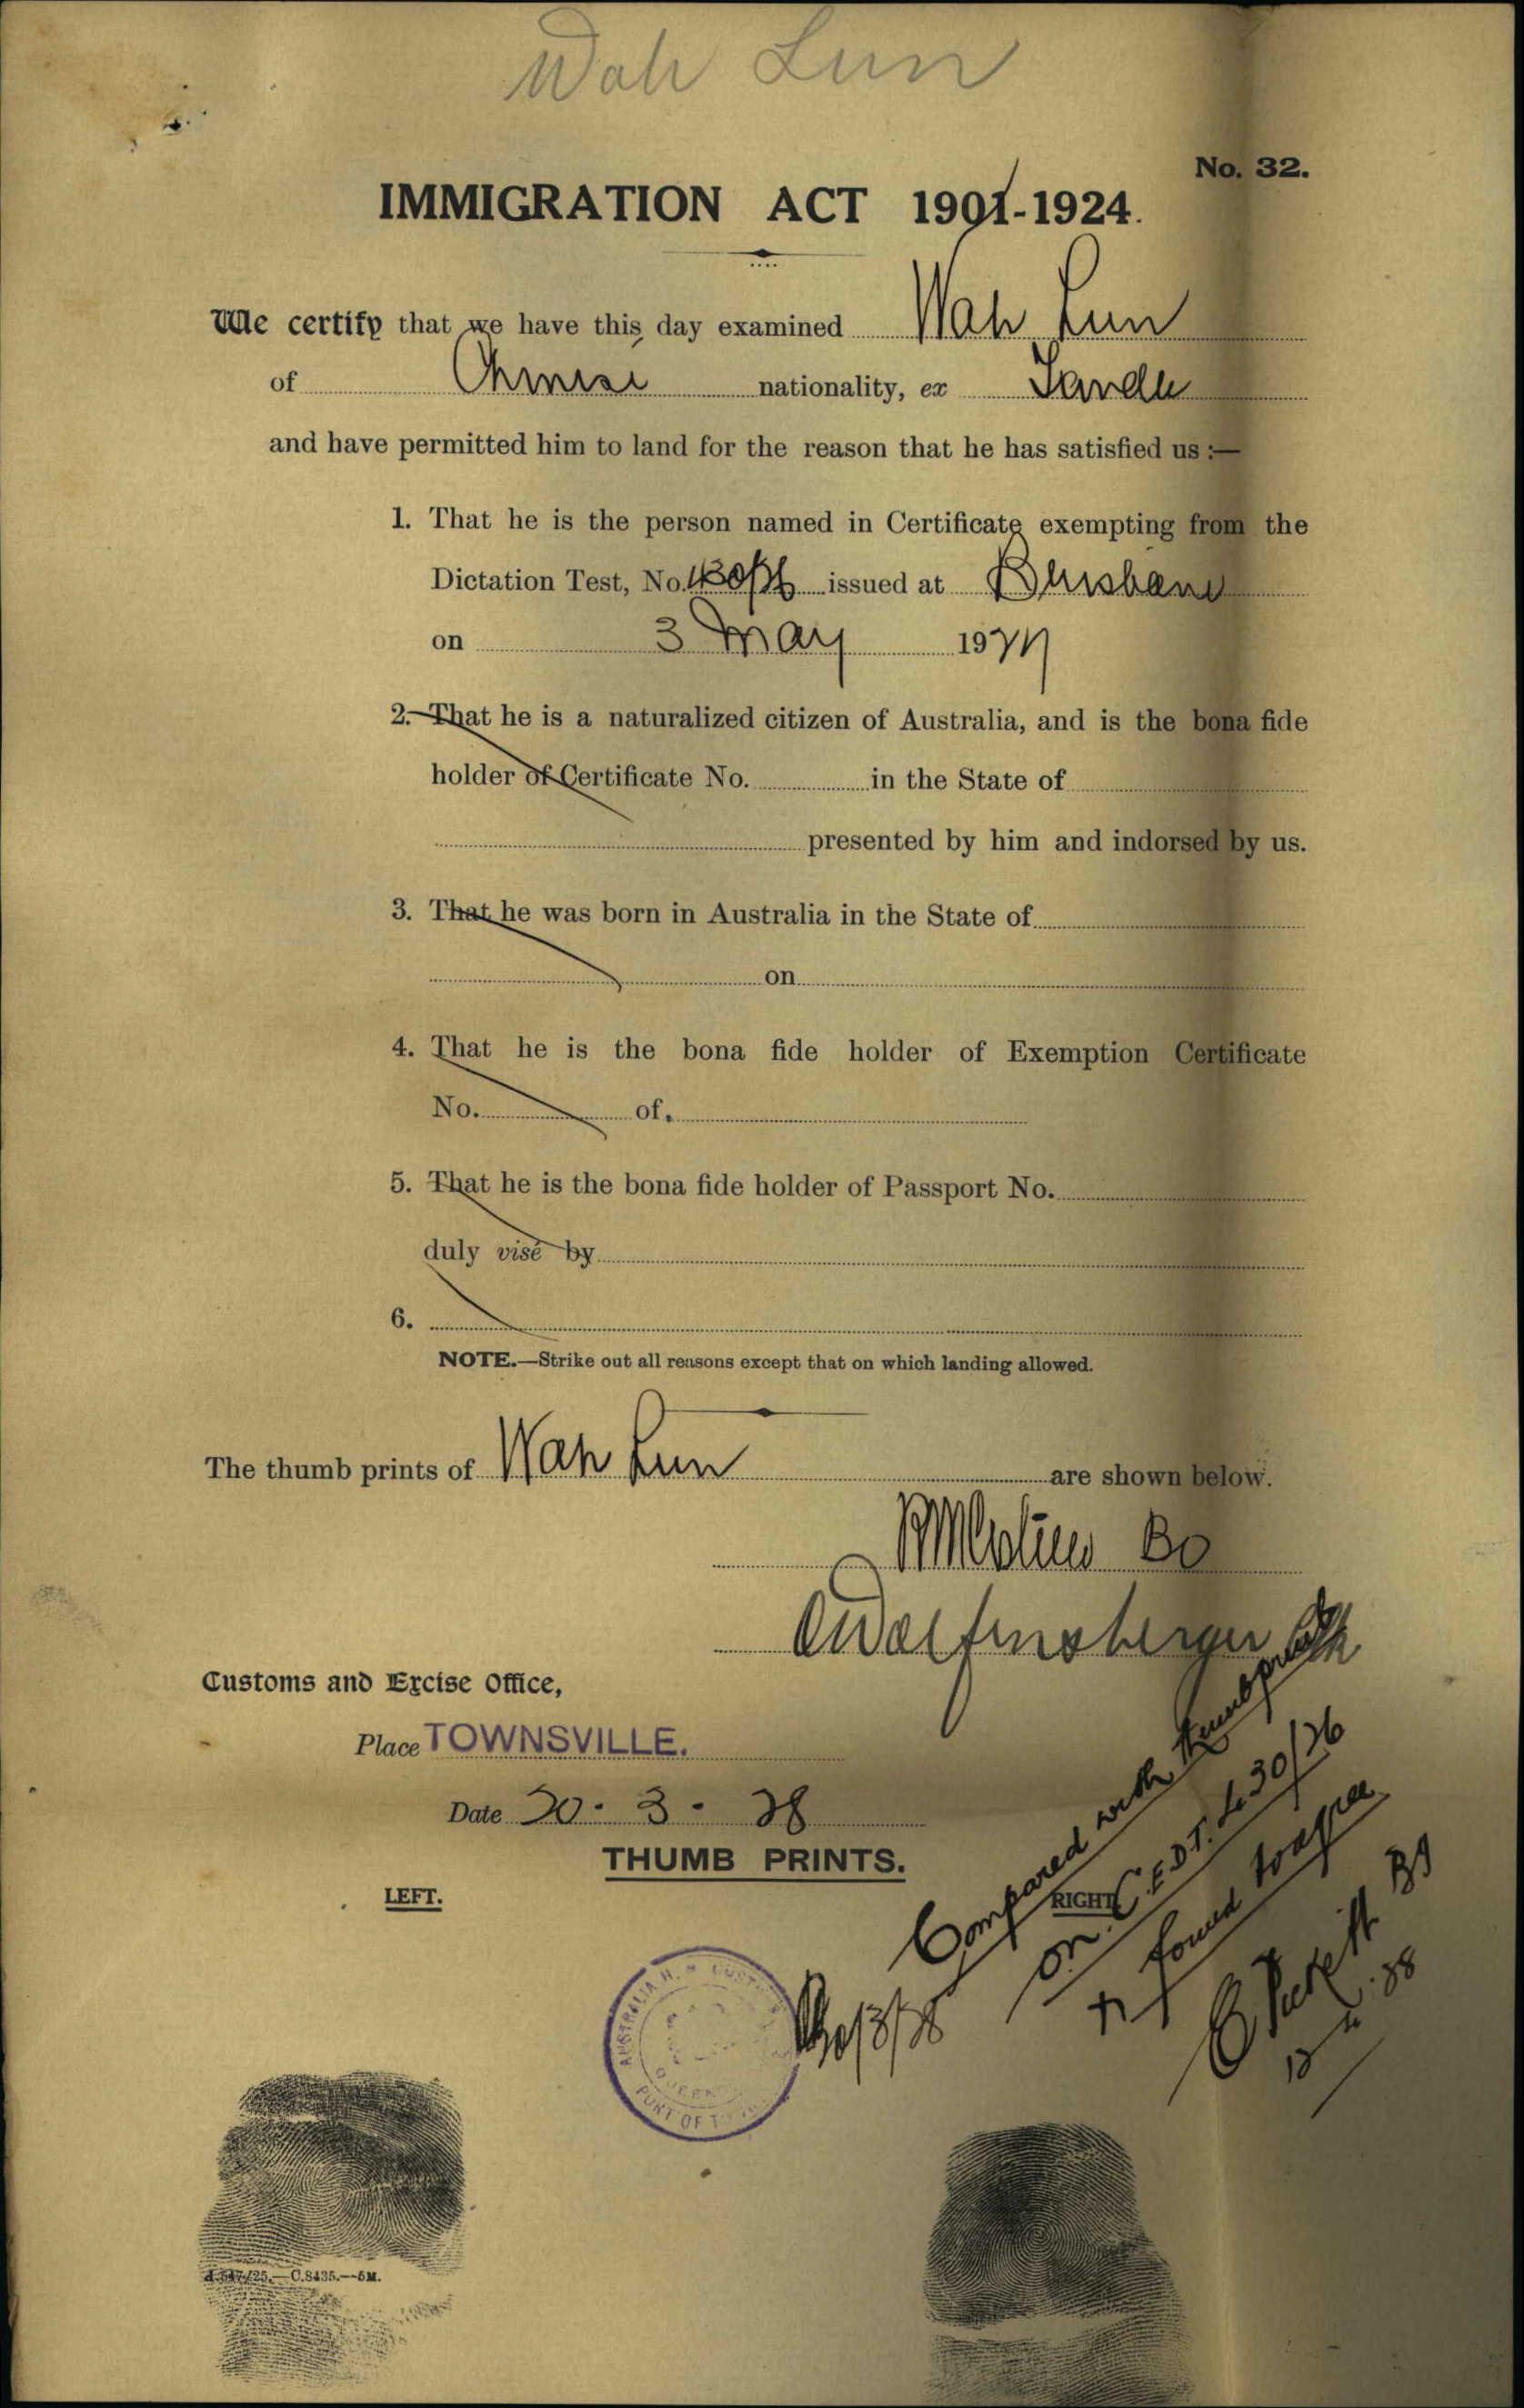 Wah Lun
No. 32.
IMMIGRATION ACT 1901-1924.
We certify that we have this day examined Wah Lun
of Chinese nationality, ex Tanda
and have permitted him to land for the reason that he has satisfied us :—
1. That he is the person named in Certificate exempting from the
Dictation Test, No. 430/26 issued at Brisbane
on 3 May 1927
2. That he is a naturalized citizen of Australia, and is the bona fide
holder of Certificate No. in the State of
presented by him and indorsed by us.
3. That he was born in Australia in the State of
on
4. That he is the bona fide holder of Exemption Certificate
No. of
5. That he is the bona fide holder of Passport No.
duly visé by
6.
NOTE.—Strike out all reasons except that on which landing allowed.
The thumb prints of Wah Lun are shown below.
BO
Customs and Excise Office,
Place TOWNSVILLE.
Date 20 - 3 - 28
THUMB PRINTS.
LEFT.
RIGHT
Compared with thumbprints
on C.E.D.T. 430/26
& found to agree
AUSTRALIA H.M. CUSTOMS
PORT OF T
C.8435.—5M.